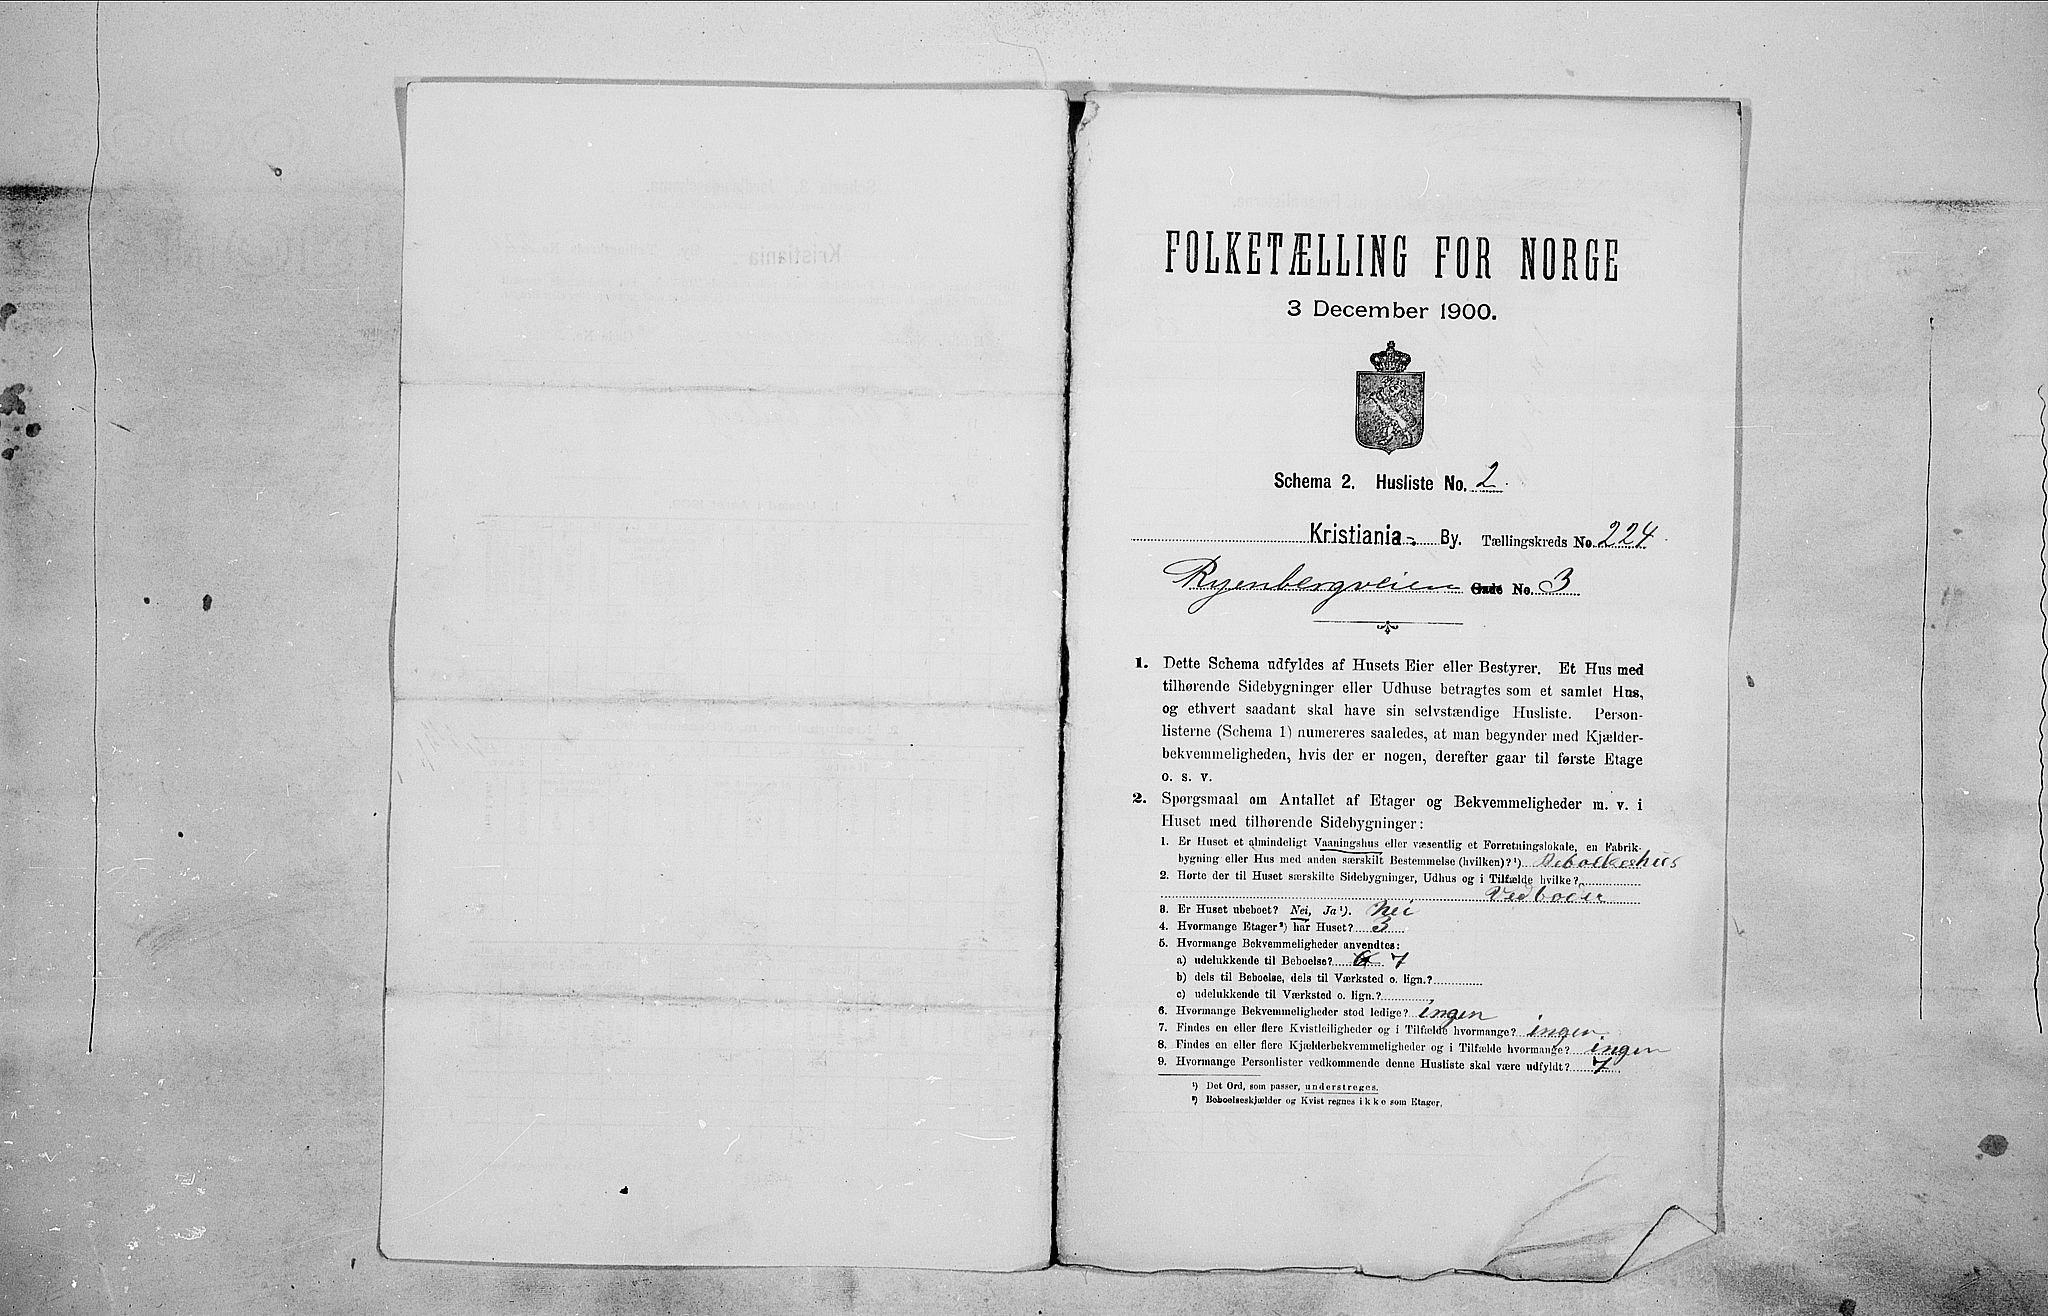 FOLKETÆLLING FOR NORGE
3 December 1900.
Schema 2. Husliste No. 2.
Kristiania By. Tællingskreds No. 224.
Ryenbergveien Gade No. 3
1. Dette Schema udfyldes af Husets Eier eller Bestyrer. Et Hus med
tilhørende Sidebygninger eller Udhuse betragtes som et samlet Hus,
og ethvert saadant skal have sin selvstændige Husliste. Person-
listerne (Schema 1) numereres saaledes, at man begynder med Kjælder-
bekvemmeligheden, hvis der er nogen, derefter gaar til første Etage
o. s. v.
2. Spørgsmaal om Antallet af Etager og Bekvemmeligheder m. v. i
Huset med tilhørende Sidebygninger:
1. Er Huset et almindeligt Vaaningshus eller væsentlig et Forretningslokale, en Fabrik-
bygning eller Hus med anden særskilt Bestemmelse (hvilken)? ¹)
2. Hørte der til Huset særskilte Sidebygninger, Udhus og i Tilfælde hvilke?
Vedboder
3. Er Huset ubeboet? Nei, Ja ¹). Nei
4. Hvormange Etager ²) har Huset? 3
5. Hvormange Bekvemmeligheder anvendtes:
a) udelukkende til Beboelse? 6 7
b) dels til Beboelse, dels til Værksted o. lign.?
c) udelukkende til Værksted o. lign.?
6. Hvormange Bekvemmeligheder stod ledige? ingen
7. Findes en eller flere Kvistleiligheder og i Tilfælde hvormange? ingen
8. Findes en eller flere Kjælderbekvemmeligheder og i Tilfælde hvormange? ingen
9. Hvormange Personlister vedkommende denne Husliste skal være udfyldt? 7
¹) Det Ord, som passer, understreges.
²) Beboelseskjælder og Kvist regnes ikke som Etager.